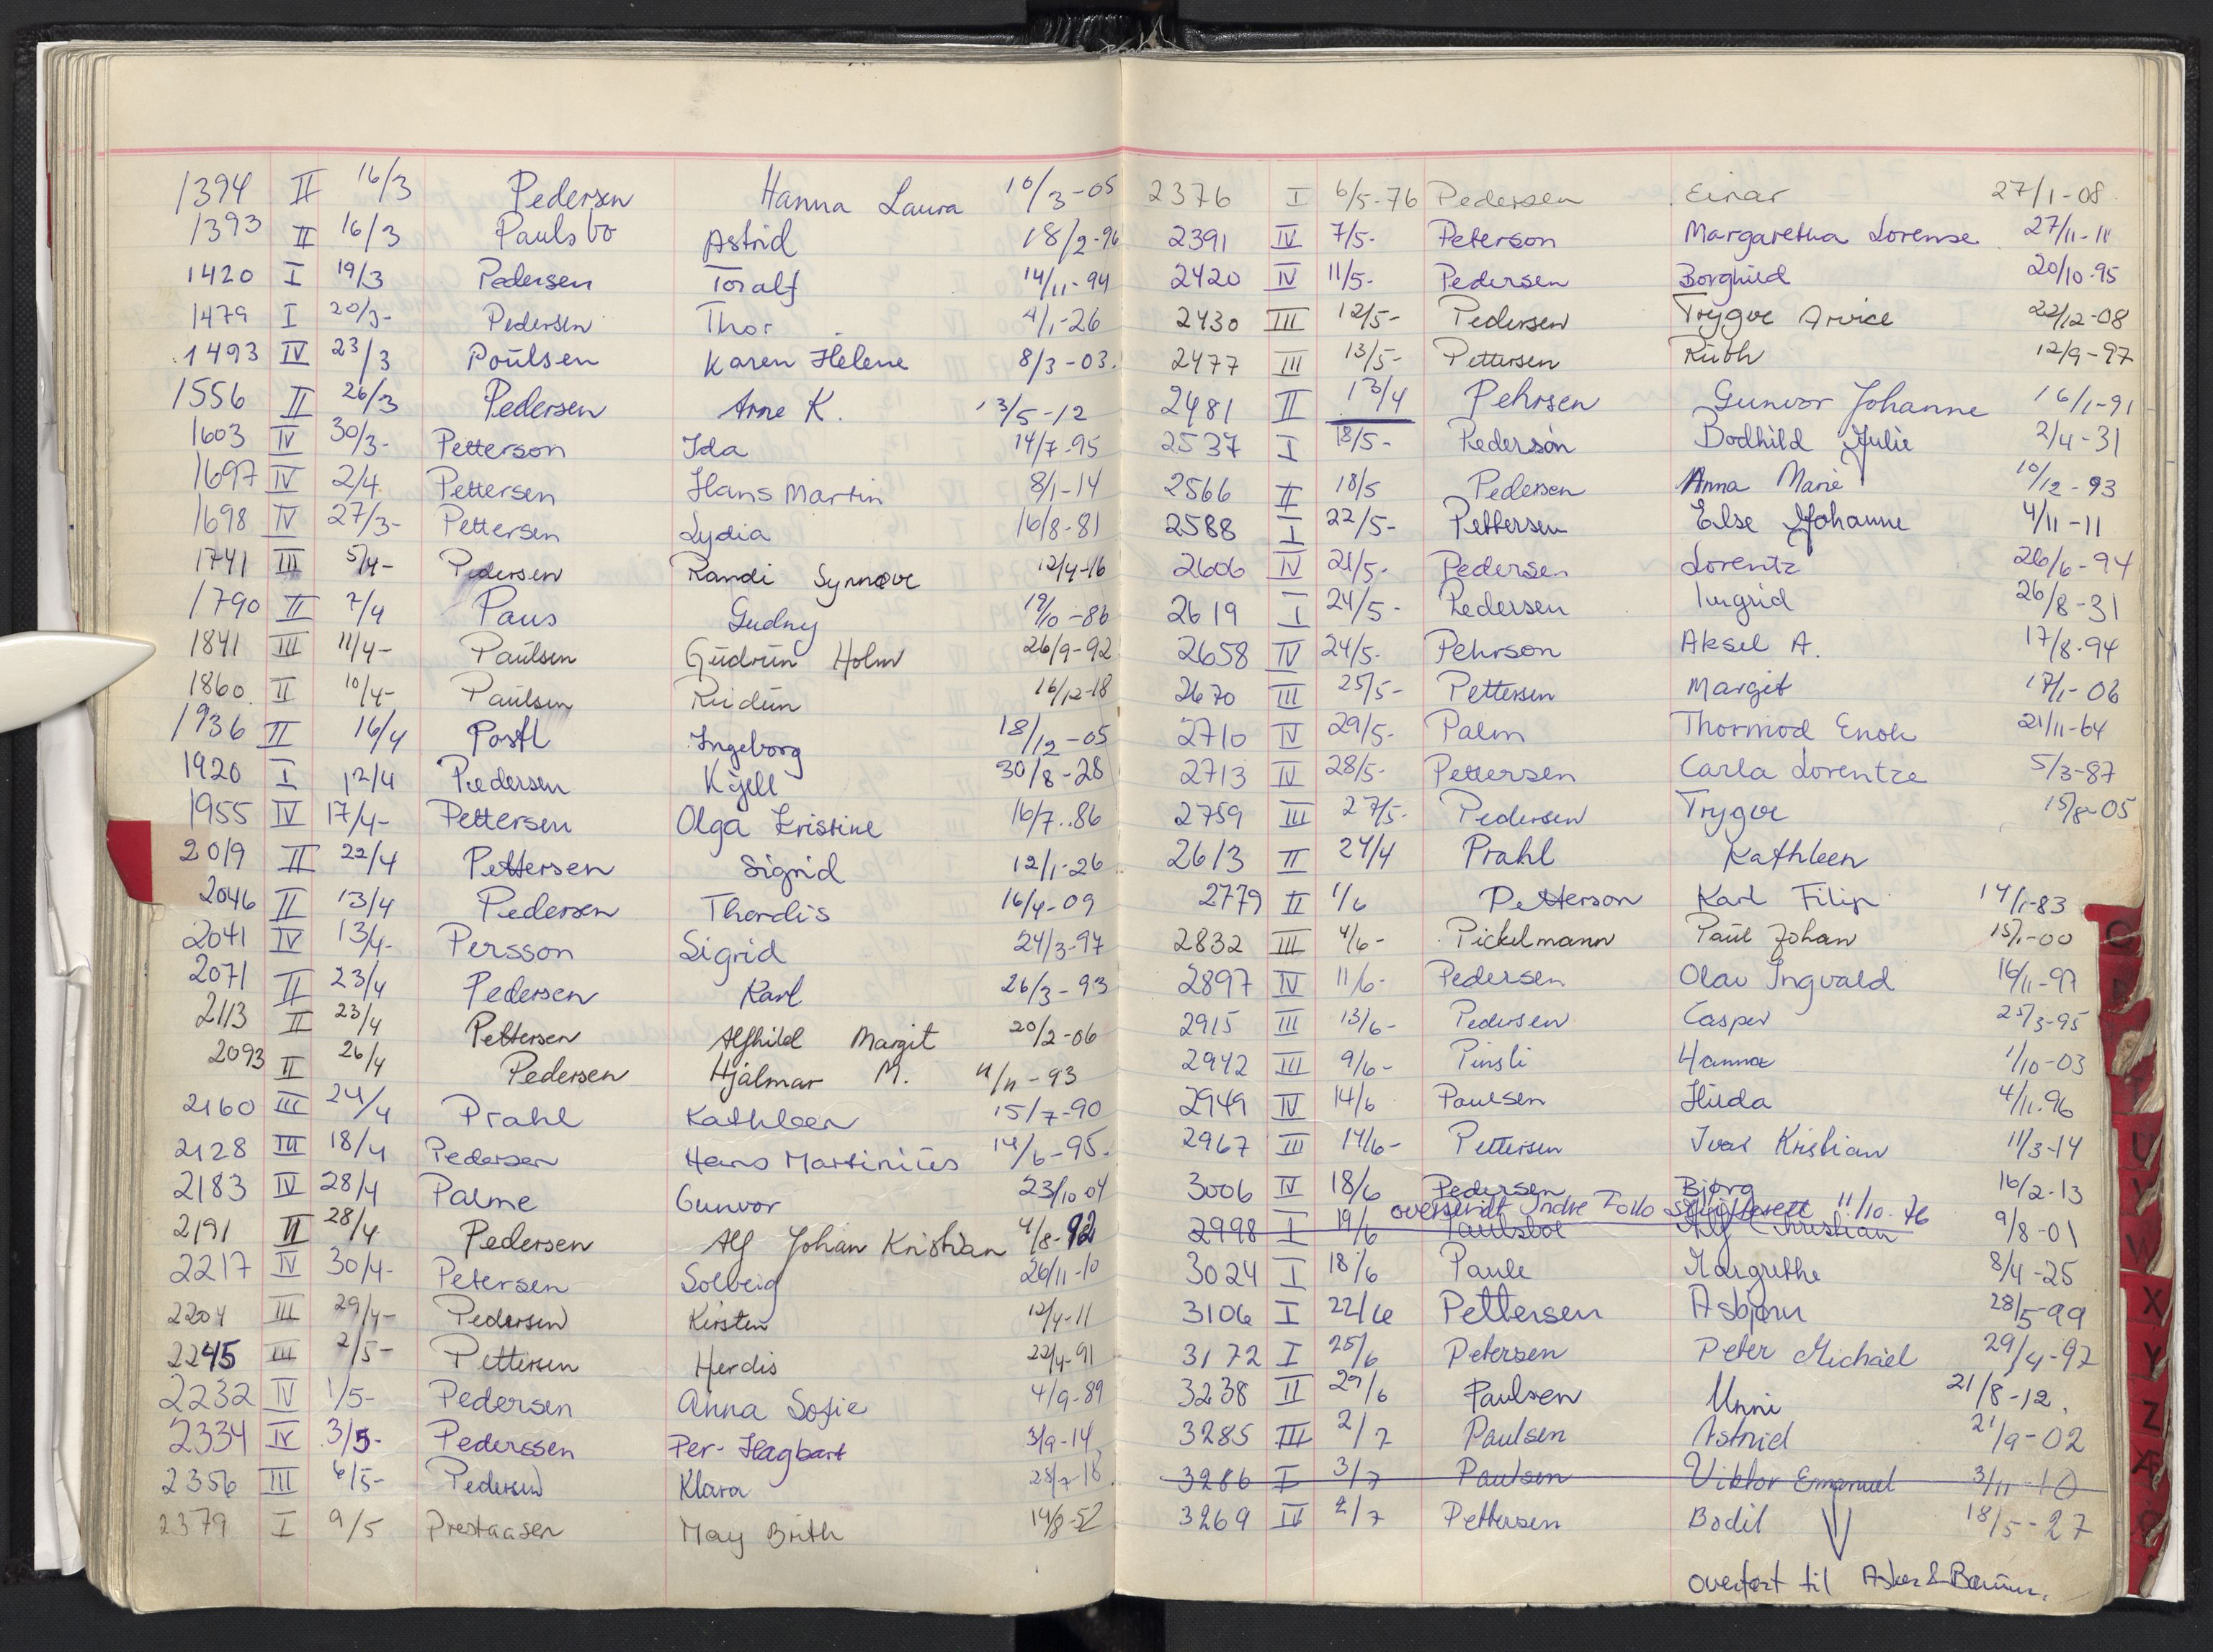 1394 II 16/3 Pedersen Hanna Laura 10/3-05
1393 II 16/3 Paulsbo Astrid 18/2-96
1420 I 19/3 Pedersen Toralf 14/11-94
1479 I 20/3- Pedersen Thor 4/1-26
1493 IV 23/3 Poulsen Karen Helene 8/3-03.
1556 II 26/3 Pedersen Arne K. 13/5-12
1603 IV 30/3- Petterson Ida 14/7-95
1697 IV 2/4 Pettersen Hans Martin 8/1-14
1698 IV 27/3- Pettersen Lydia 16/8-81
1741 III 5/4- Pedersen Randi Synnøve 12/4-16
1790 II 7/4 Paus Gudny 19/10-86
1841 III 11/4- Paulsen Gudrun Holm 26/9-92
1860 II 10/4- Paulsen Reidun 16/12-18
1936 II 16/4 Postl Ingeborg 18/12-05
1920 I 12/4 Pedersen Kjell 30/8-28
1955 IV 17/4- Pettersen Olga Kristine 16/7-86
2019 II 22/4 Pettersen Sigrid 12/1-26
2046 II 13/4 Pedersen Thordis 16/4-09
2041 IV 13/4- Persson Sigrid 24/3-97
2071 II 23/4 Pedersen Karl 26/3-93
2113 II 23/4 Pettersen Alfhild Margit 20/2-06
2093 II 26/4 Pedersen Hjalmar M. 11/11-93
2160 III 24/4 Prahl Kathleen 15/7-90
2128 III 18/4 Pedersen Hans Martinius 14/6-95-
2183 IV 28/4 Palme Gunvor 23/10 04
2191 II 28/4 Pedersen Alf Johan Kristian 4/8-92
2217 IV 30/4- Petersen Solveig 26/11-10
2204 III 29/4- Pedersen Kirsten 12/4-11
2245 III 2/5- Pettersen Herdis 22/4-91
2232 IV 1/5- Pedersen Anna Sofie 4/9-89
2334 IV 3/5- Pederssen Per-Hagbart 3/9-14
2356 III 6/5- Pedersen Klara 25/7-18
2379 I 9/5 Prestaasen May Brith 14/8-52
2376 I 6/5-76 Pedersen Einar 27/1-08
2391 IV 7/5- Peterson Margaretha Lorense 27/11-11
2420 IV 11/5- Pedersen Borghild 20/10-95
2430 III 12/5- Pedersen Trygve Arvice 22/12-08
2477 III 13/5- Pettersen Ruth 12/9-97
2481 II 13/4 Pehrsen Gunvor Johanne 16/1-91
2537 I 18/5- Pedersen Bodhild Julie 2/4-31
2566 II 18/5 Pedersen Anna Marie 10/12-93
2588 I 22/5- Pettersen Else Johanne 4/11-11
2606 IV 21/5- Pedersen Lorentz 26/6-94
2619 I 24/5- Pedersen Ingrid 26/8-31
2658 IV 24/5- Pehrson Aksel A. 17/8-94
2670 III 25/5- Pettersen Margit 17/1-06
2710 IV 29/5- Palm Thormod Enok 21/11-64
2713 IV 28/5- Pettersen Carla Lorentze 5/3-87
2759 III 27/5- Pedersen Trygve 15/8-05
2613 II 24/4 Prahl Kathleen
2779 II 1/6 Petterson Karl Filip 14/1-83
2832 III 4/6- Pickelmann Paul Johan 15/1-00
2897 IV 11/6- Pedersen Olav Ingvald 16/11-97
2915 III 13/6- Pedersen Casper 25/3-95
2942 III 9/6- Pinsli Hanna 1/10-03
2949 IV 14/6 Paulsen Hilda 4/11-96
2967 III 14/6- Pettersen Ivar Kristian 11/3-14
3006 IV 18/6 Pedersen Bjørg 16/2-13
oversendt Indre Follo skifterett 11/10-76
2998 I 19/6 Paulsboe Alf Christian 9/8-01
3024 I 18/6 Paule Margrethe 8/4-25
3106 I 22/6 Pettersen Asbjørn 28/5-99
3172 I 25/6 Petersen Peter Michael 29/4-97
3238 II 29/6 Paulsen Unni 21/8-12.
3285 III 2/7 Paulsen Astrid 21/9-02
3286 I 3/7 Paulsen Viktor Emanuel 3/11-10
3269 IV 2/7 Pettersen Bodil 18/5-27
overført til Asker & Bærum.
U
W
X
Y
Z
Æ